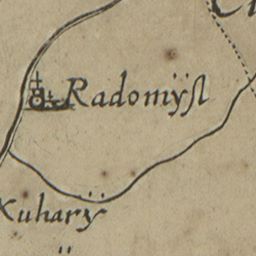 Radomÿſl
Kuharÿ